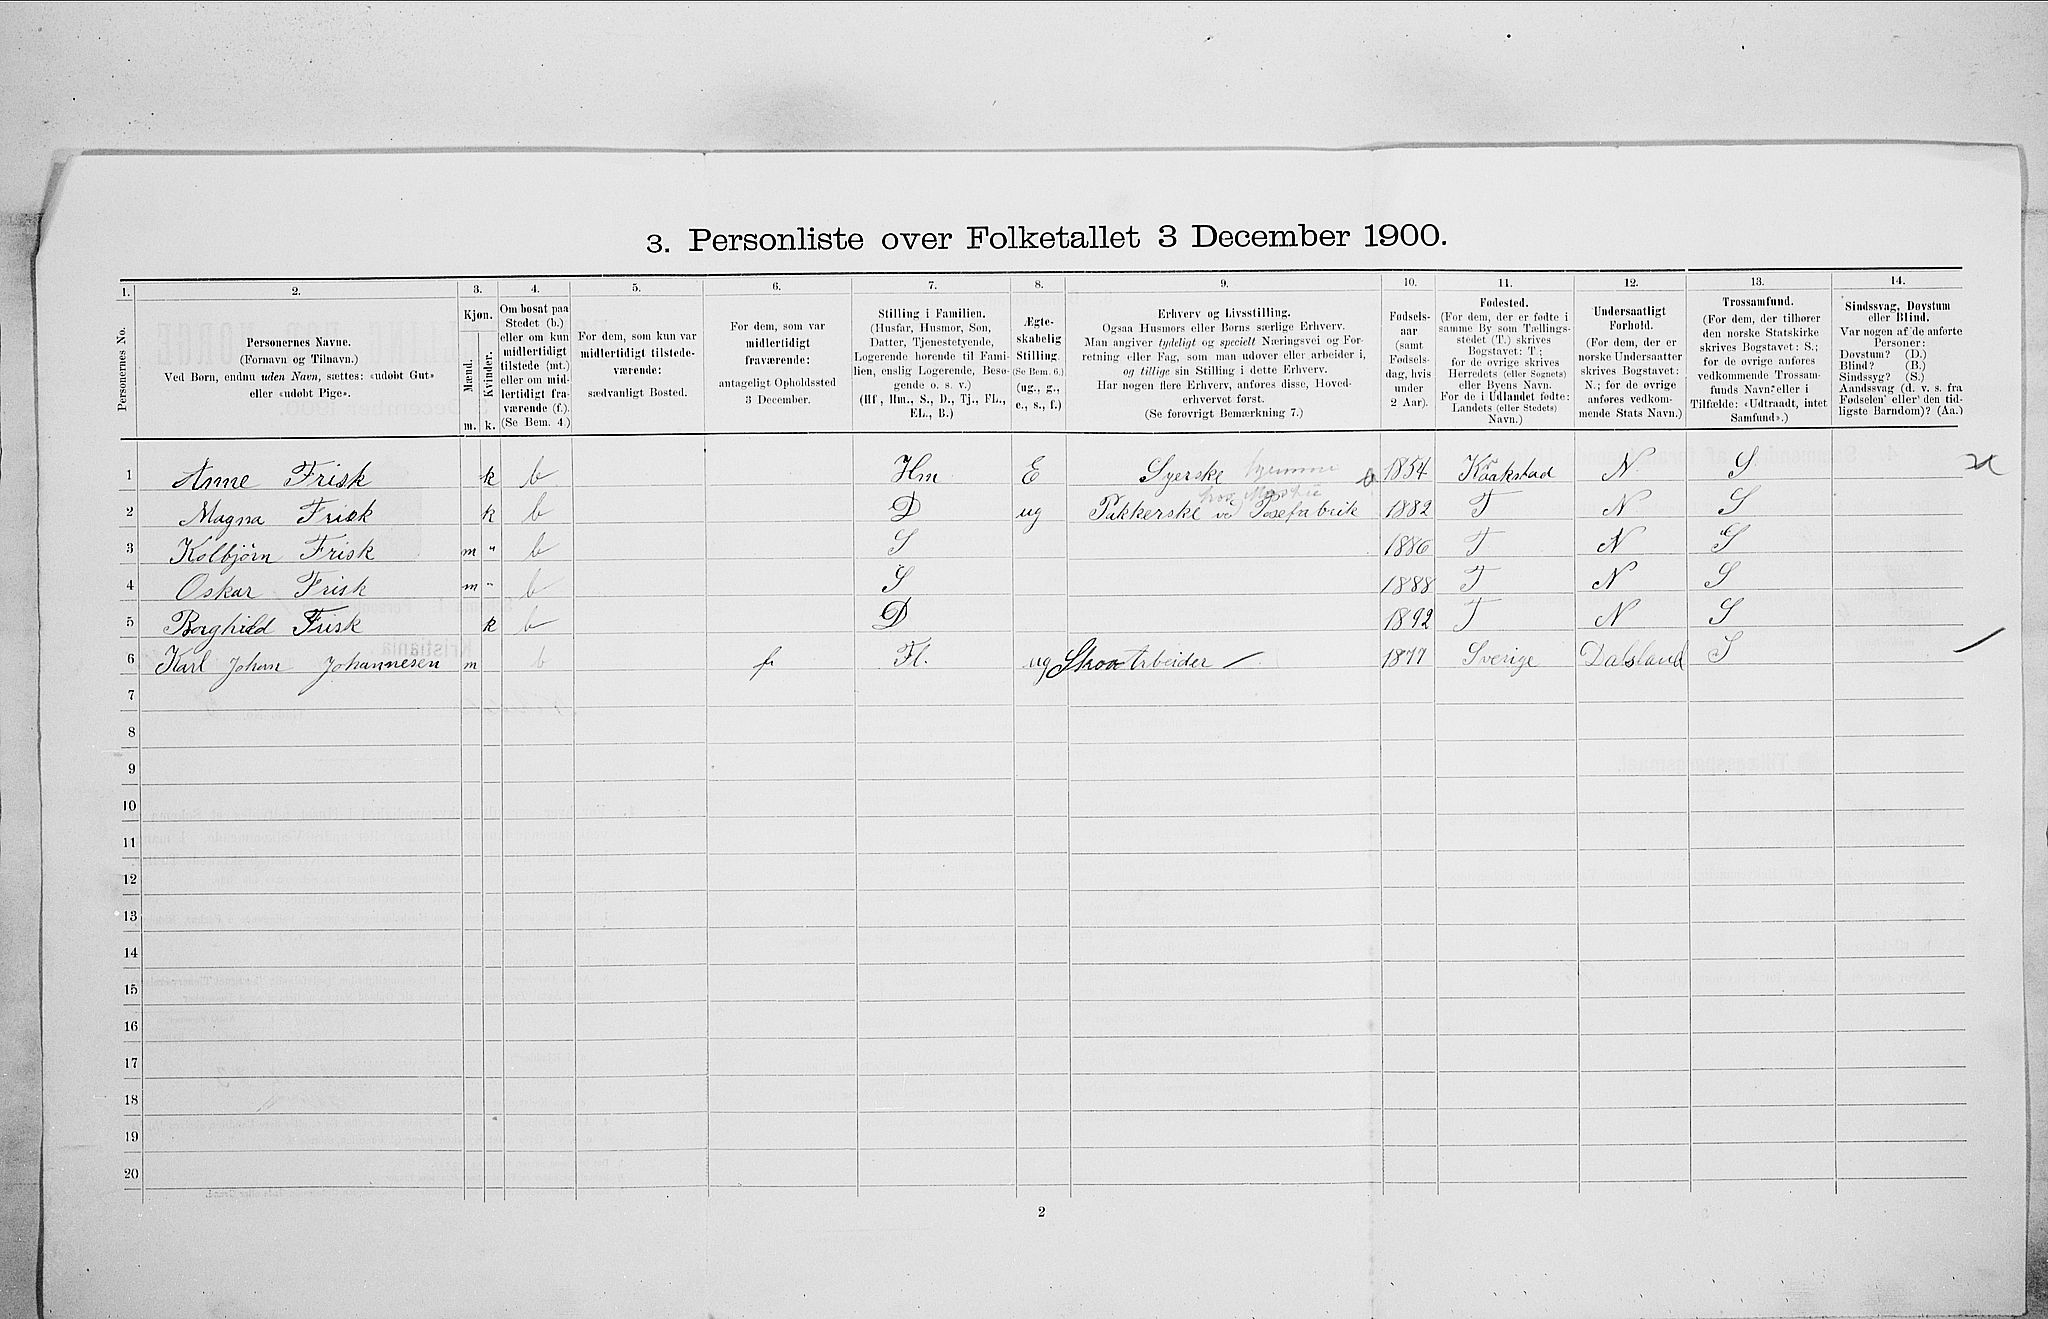 3. Personliste over Folketallet 3 December 1900.
1. 2. 3. 4. 5. 6. 7. 8. 9. 10. 11. 12. 13. 14.
Personernes No.
Personernes Navne.
(Fornavn og Tilnavn.)
Ved Børn, endnu uden Navn, sættes: «udøbt Gut»
eller «udøbt Pige».
Kjøn.
Mænd.
Kvinder.
m. k.
Om bosat paa
Stedet (b.)
eller om kun
midlertidigt
tilstede (mt.)
eller om mid-
lertidigt fra-
værende (f.).
(Se Bem. 4.)
For dem, som kun var
midlertidigt tilstede-
værende:
sædvanligt Bosted.
For dem, som var
midlertidigt
fraværende:
antageligt Opholdssted
3 December.
Stilling i Familien.
(Husfar, Husmor, Søn,
Datter, Tjenestetyende,
Logerende hørende til Fami-
lien, enslig Logerende, Besø-
gende o. s. v.)
(Hf., Hm., S., D., Tj., FL.,
EL., B.)
Ægte-
skabelig
Stilling.
(Se Bem. 6.)
(ug., g.,
e., s., f.)
Erhverv og Livsstilling.
Ogsaa Husmors eller Børns særlige Erhverv.
Man angiver tydeligt og specielt Næringsvei og For-
retning eller Fag, som man udover eller arbeider i,
og tillige sin Stilling i dette Erhverv.
Har nogen flere Erhverv, anføres disse, Hoved-
erhvervet først.
(Se forøvrigt Bemærkning 7.)
Fødsels-
aar
(samt
Fødsels-
dag, hvis
under
2 Aar).
Fødested.
(For dem, der er fødte i
samme By som Tællings-
stedet (T.) skrives
Bogstavet: T.;
for de øvrige skrives
Herredets (eller Sognets)
eller Byens Navn.
For de i Udlandet fødte:
Landets (eller Stedets)
Navn.)
Undersaatligt
Forhold.
(For dem, der er
norske Undersaatter
skrives Bogstavet:
N.; for de øvrige
anføres vedkom-
mende Stats Navn.)
Trossamfund.
(For dem, der tilhører
den norske Statskirke
skrives Bogstavet: S.;
for de øvrige anføres
vedkommende Trossam-
funds Navn eller i
Tilfælde: «Udtraadt, intet
Samfund».)
Sindssvag, Døvstum
eller Blind.
Var nogen af de anførte
Personer:
Døvstum? (D.)
Blind? (B.)
Sindssyg? (S.)
Aandssvag (d. v. s. fra
Fødselen eller den tid-
ligste Barndom)? (Aa.)
1 Anne Frisk k b Hm E Syerske hjemme 1854 Kråkstad N S
2 Magna Frisk k b D ug Pakkerske ved Posefabrik 1882 T N S
3 Kolbjörn Frisk m " b S 1886 T N S
4 Oskar Frisk m " b S 1888 T N S
5 Borghild Frisk k b D 1892 T N S
6 Karl Johan Johannesen m b f Fl. ug Skoarbeider 1877 Sverige Dalsland S
7
8
9
10
11
12
13
14
15
16
17
18
19
20
2